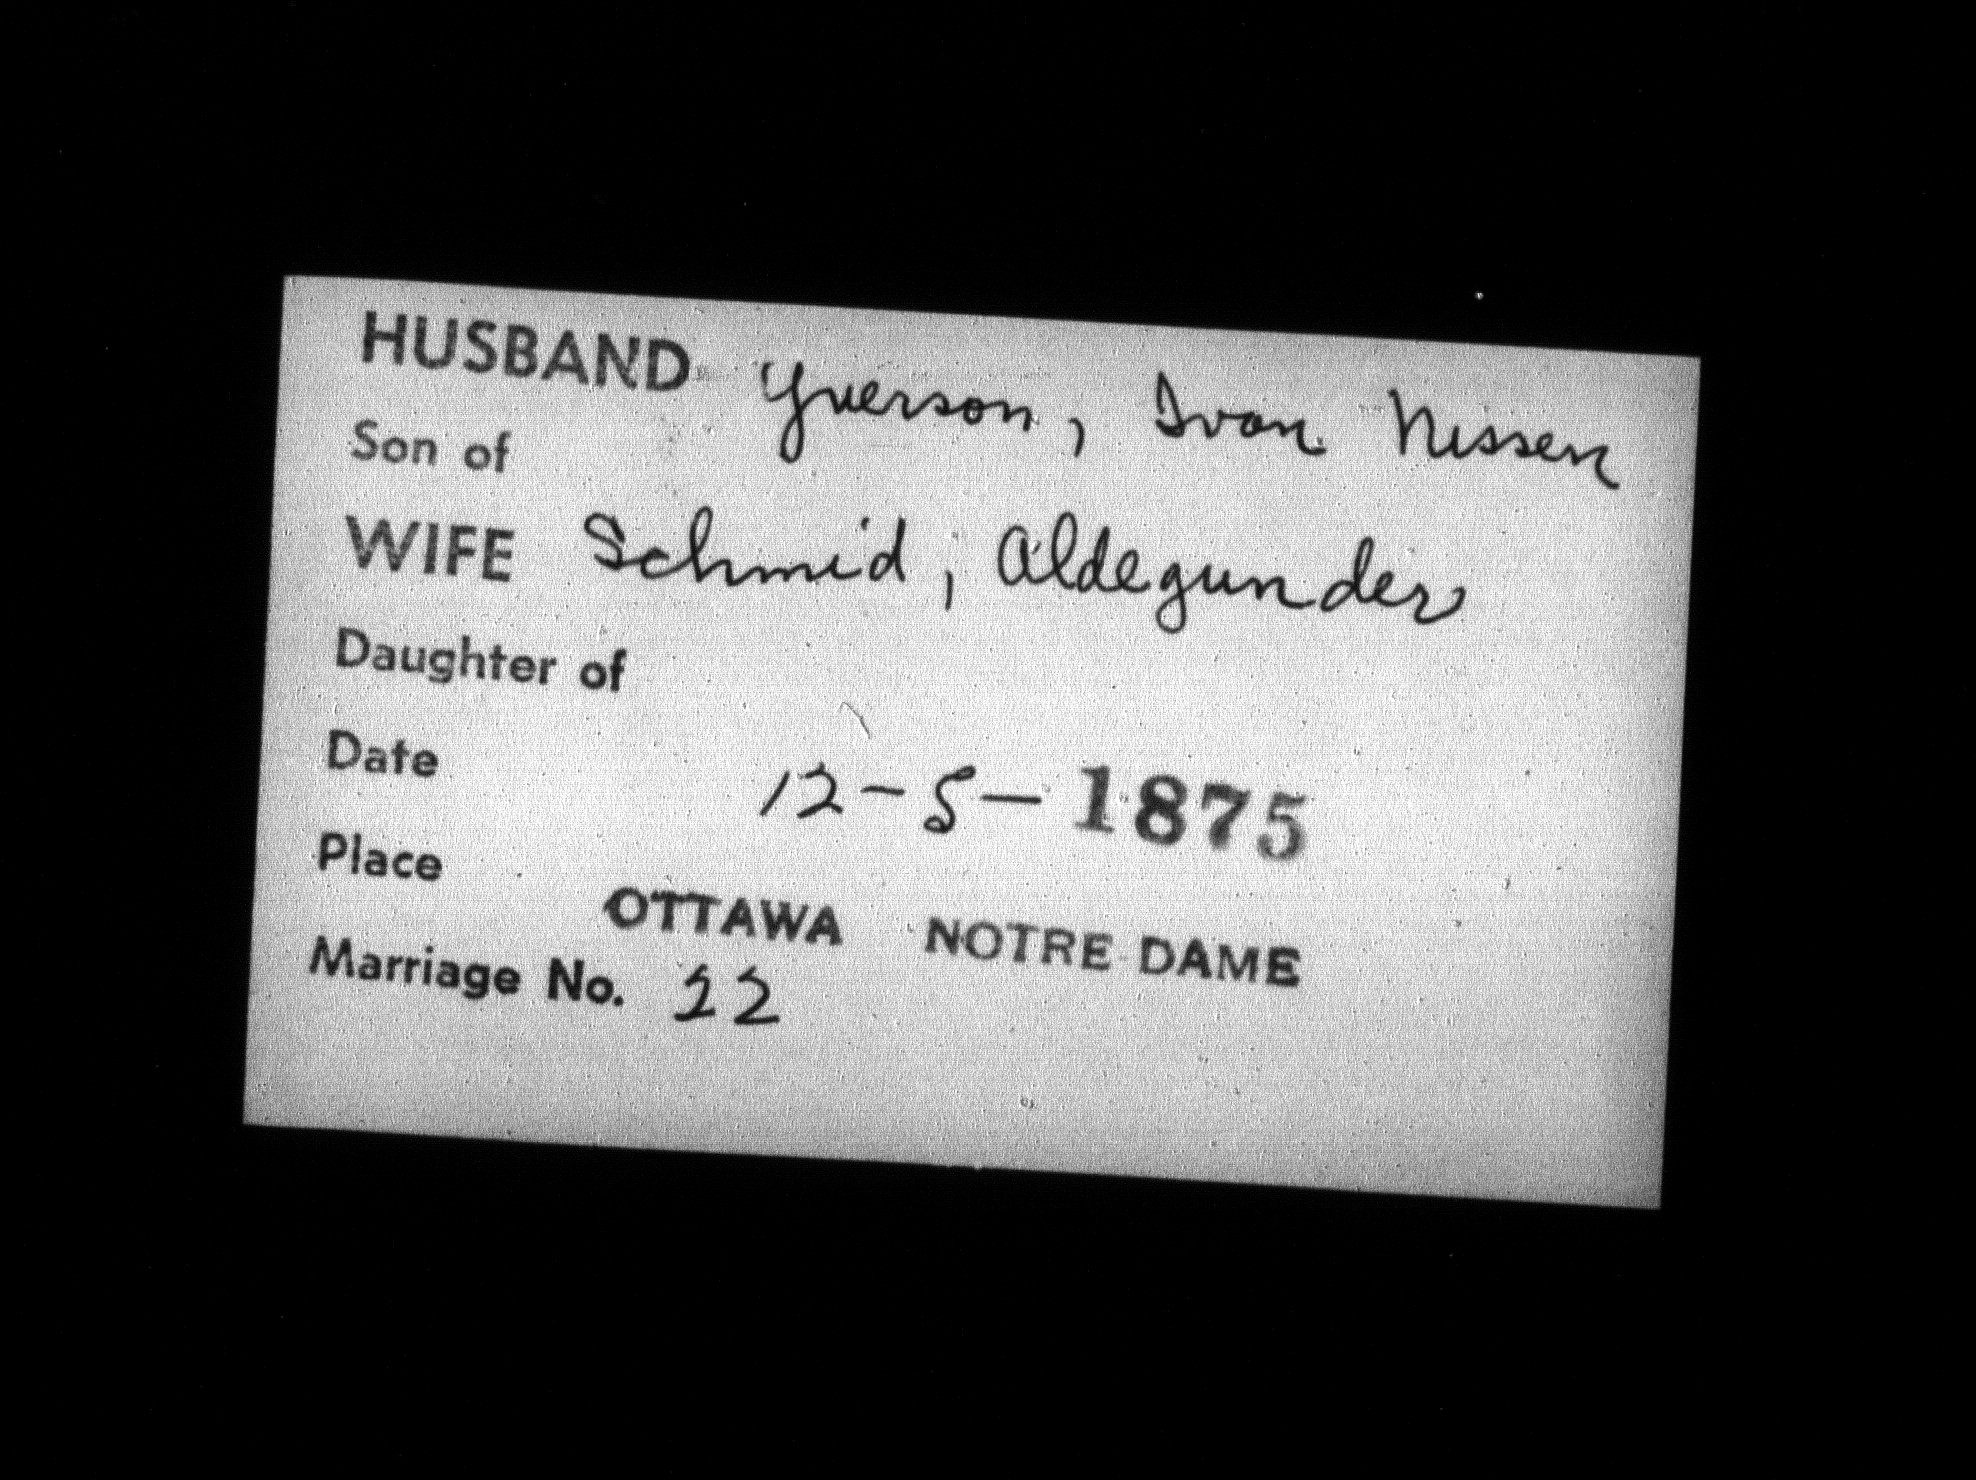 HUSBAND Yverson, Ivan Nissen
Son of
WIFE Schmid, Aldegunder
Daughter of
Date 12-5-1875
Place OTTAWA NOTRE DAME
Marriage No. 22